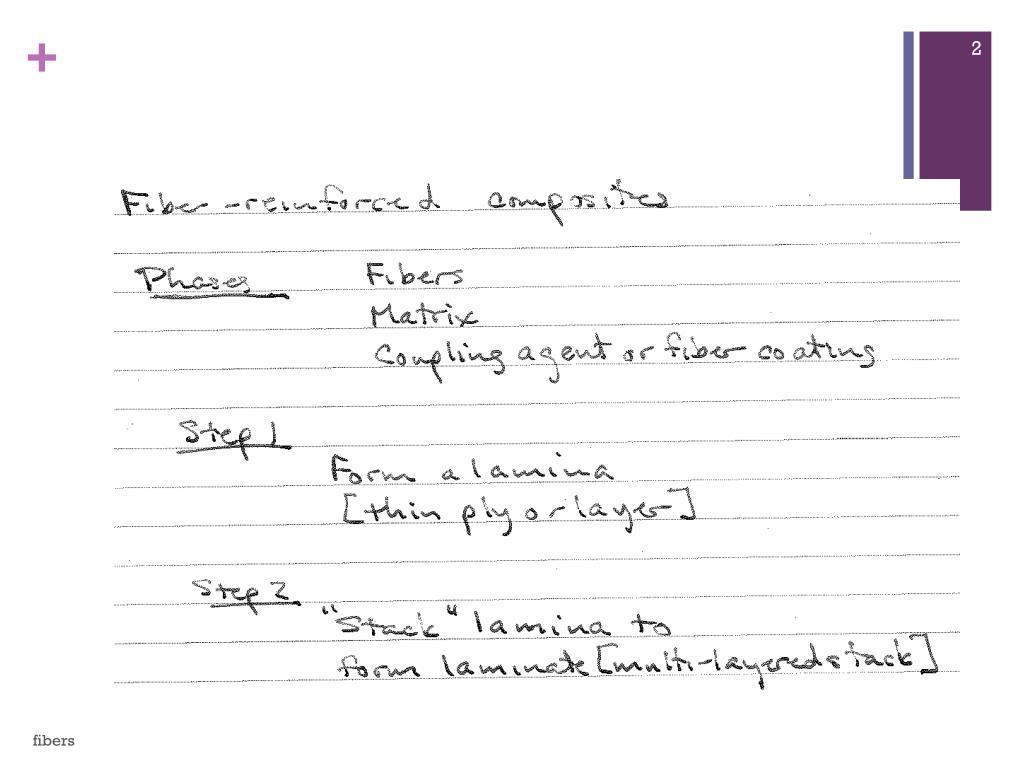 +
2
Fiber-reinforced composites
Phases Fibers
Matrix
Coupling agent or fiber coating
Step 1
Form a lamina
[thin ply or layer]
Step 2
"Stack" lamina to
form laminate [multi-layered stack]
fibers